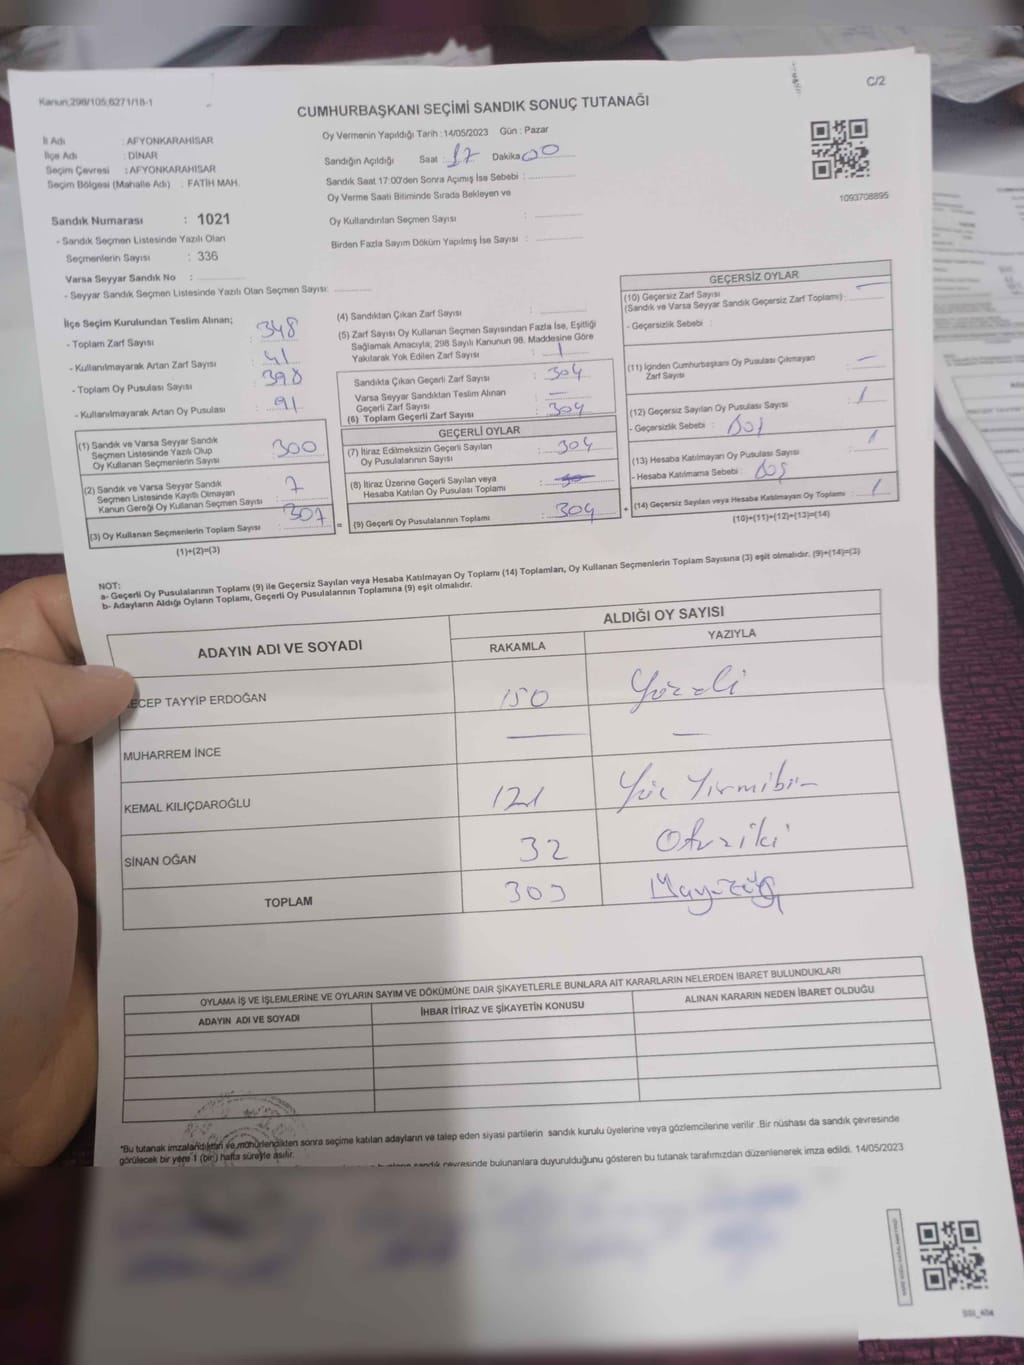 Kanun;298/105;6271/18-1
C/2
CUMHURBAŞKANI SEÇİMİ SANDIK SONUÇ TUTANAĞI
İl Adı : AFYONKARAHİSAR
İlçe Adı : DİNAR
Seçim Çevresi : AFYONKARAHİSAR
Seçim Bölgesi (Mahalle Adı) : FATİH MAH.
Sandık Numarası : 1021
- Sandık Seçmen Listesinde Yazılı Olan
Seçmenlerin Sayısı : 336
Varsa Seyyar Sandık No :
- Seyyar Sandık Seçmen Listesinde Yazılı Olan Seçmen Sayısı:
Oy Vermenin Yapıldığı Tarih :14/05/2023 Gün : Pazar
Sandığın Açıldığı Saat : 17 Dakika 00
Sandık Saat 17:00'den Sonra Açımış İse Sebebi :
Oy Verme Saati Bitiminde Sırada Bekleyen ve
Oy Kullandırılan Seçmen Sayısı :
Birden Fazla Sayım Döküm Yapılmış İse Sayısı :
1093708895
İlçe Seçim Kurulundan Teslim Alınan;
- Toplam Zarf Sayısı : 348
- Kullanılmayarak Artan Zarf Sayısı : 41
- Toplam Oy Pusulası Sayısı : 398
- Kullanılmayarak Artan Oy Pusulası : 91
(1) Sandık ve Varsa Seyyar Sandık
Seçmen Listesinde Yazılı Olup
Oy Kullanan Seçmenlerin Sayısı : 300
(2) Sandık ve Varsa Seyyar Sandık
Seçmen Listesinde Kayıtlı Olmayan
Kanun Gereği Oy Kullanan Seçmen Sayısı : 7
(3) Oy Kullanan Seçmenlerin Toplam Sayısı : 307
(1)+(2)=(3)
=
(4) Sandıktan Çıkan Zarf Sayısı :
(5) Zarf Sayısı Oy Kullanan Seçmen Sayısından Fazla İse, Eşitliği
Sağlamak Amacıyla; 298 Sayılı Kanunun 98. Maddesine Göre
Yakılarak Yok Edilen Zarf Sayısı : 1
Sandıkta Çıkan Geçerli Zarf Sayısı : 304
Varsa Seyyar Sandıktan Teslim Alınan
Geçerli Zarf Sayısı : —
(6) Toplam Geçerli Zarf Sayısı : 304
GEÇERLİ OYLAR
(7) İtiraz Edilmeksizin Geçerli Sayılan
Oy Pusulalarının Sayısı : 304
(8) İtiraz Üzerine Geçerli Sayılan veya
Hesaba Katılan Oy Pusulası Toplamı :
(9) Geçerli Oy Pusulalarının Toplamı : 304
+
GEÇERSİZ OYLAR
(10) Geçersiz Zarf Sayısı
(Sandık ve Varsa Seyyar Sandık Geçersiz Zarf Toplamı) : —
- Geçersizlik Sebebi :
(11) İçinden Cumhurbaşkanı Oy Pusulası Çıkmayan
Zarf Sayısı : —
(12) Geçersiz Sayılan Oy Pusulası Sayısı : 1
- Geçersizlik Sebebi : Boş
(13) Hesaba Katılmayan Oy Pusulası Sayısı : 1
- Hesaba Katılmama Sebebi : Boş
(14) Geçersiz Sayılan veya Hesaba Katılmayan Oy Toplamı : 1
(10)+(11)+(12)+(13)=(14)
NOT:
a- Geçerli Oy Pusulalarının Toplamı (9) ile Geçersiz Sayılan veya Hesaba Katılmayan Oy Toplamı (14) Toplamları, Oy Kullanan Seçmenlerin Toplam Sayısına (3) eşit olmalıdır. (9)+(14)=(3)
b- Adayların Aldığı Oyların Toplamı, Geçerli Oy Pusulalarının Toplamına (9) eşit olmalıdır.
ADAYIN ADI VE SOYADI
ALDIĞI OY SAYISI
RAKAMLA YAZIYLA
ECEP TAYYİP ERDOĞAN 150 Yüzelli
MUHARREM İNCE — —
KEMAL KILIÇDAROĞLU 121 Yüz Yirmibir
SİNAN OĞAN 32 Otuziki
TOPLAM 303
OYLAMA İŞ VE İŞLEMLERİNE VE OYLARIN SAYIM VE DÖKÜMÜNE DAİR ŞİKAYETLERLE BUNLARA AİT KARARLARIN NELERDEN İBARET BULUNDUKLARI
ADAYIN ADI VE SOYADI İHBAR İTİRAZ VE ŞİKAYETİN KONUSU ALINAN KARARIN NEDEN İBARET OLDUĞU
*Bu tutanak imzalandıktan ve mühürlendikten sonra seçime katılan adayların ve talep eden siyasi partilerin sandık kurulu üyelerine veya gözlemcilerine verilir .Bir nüshası da sandık çevresinde
görülecek bir yere 1 (bir) hafta süreyle asılır.
sandık çevresinde bulunanlara duyurulduğunu gösteren bu tutanak tarafımızdan düzenlenerek imza edildi. 14/05/2023